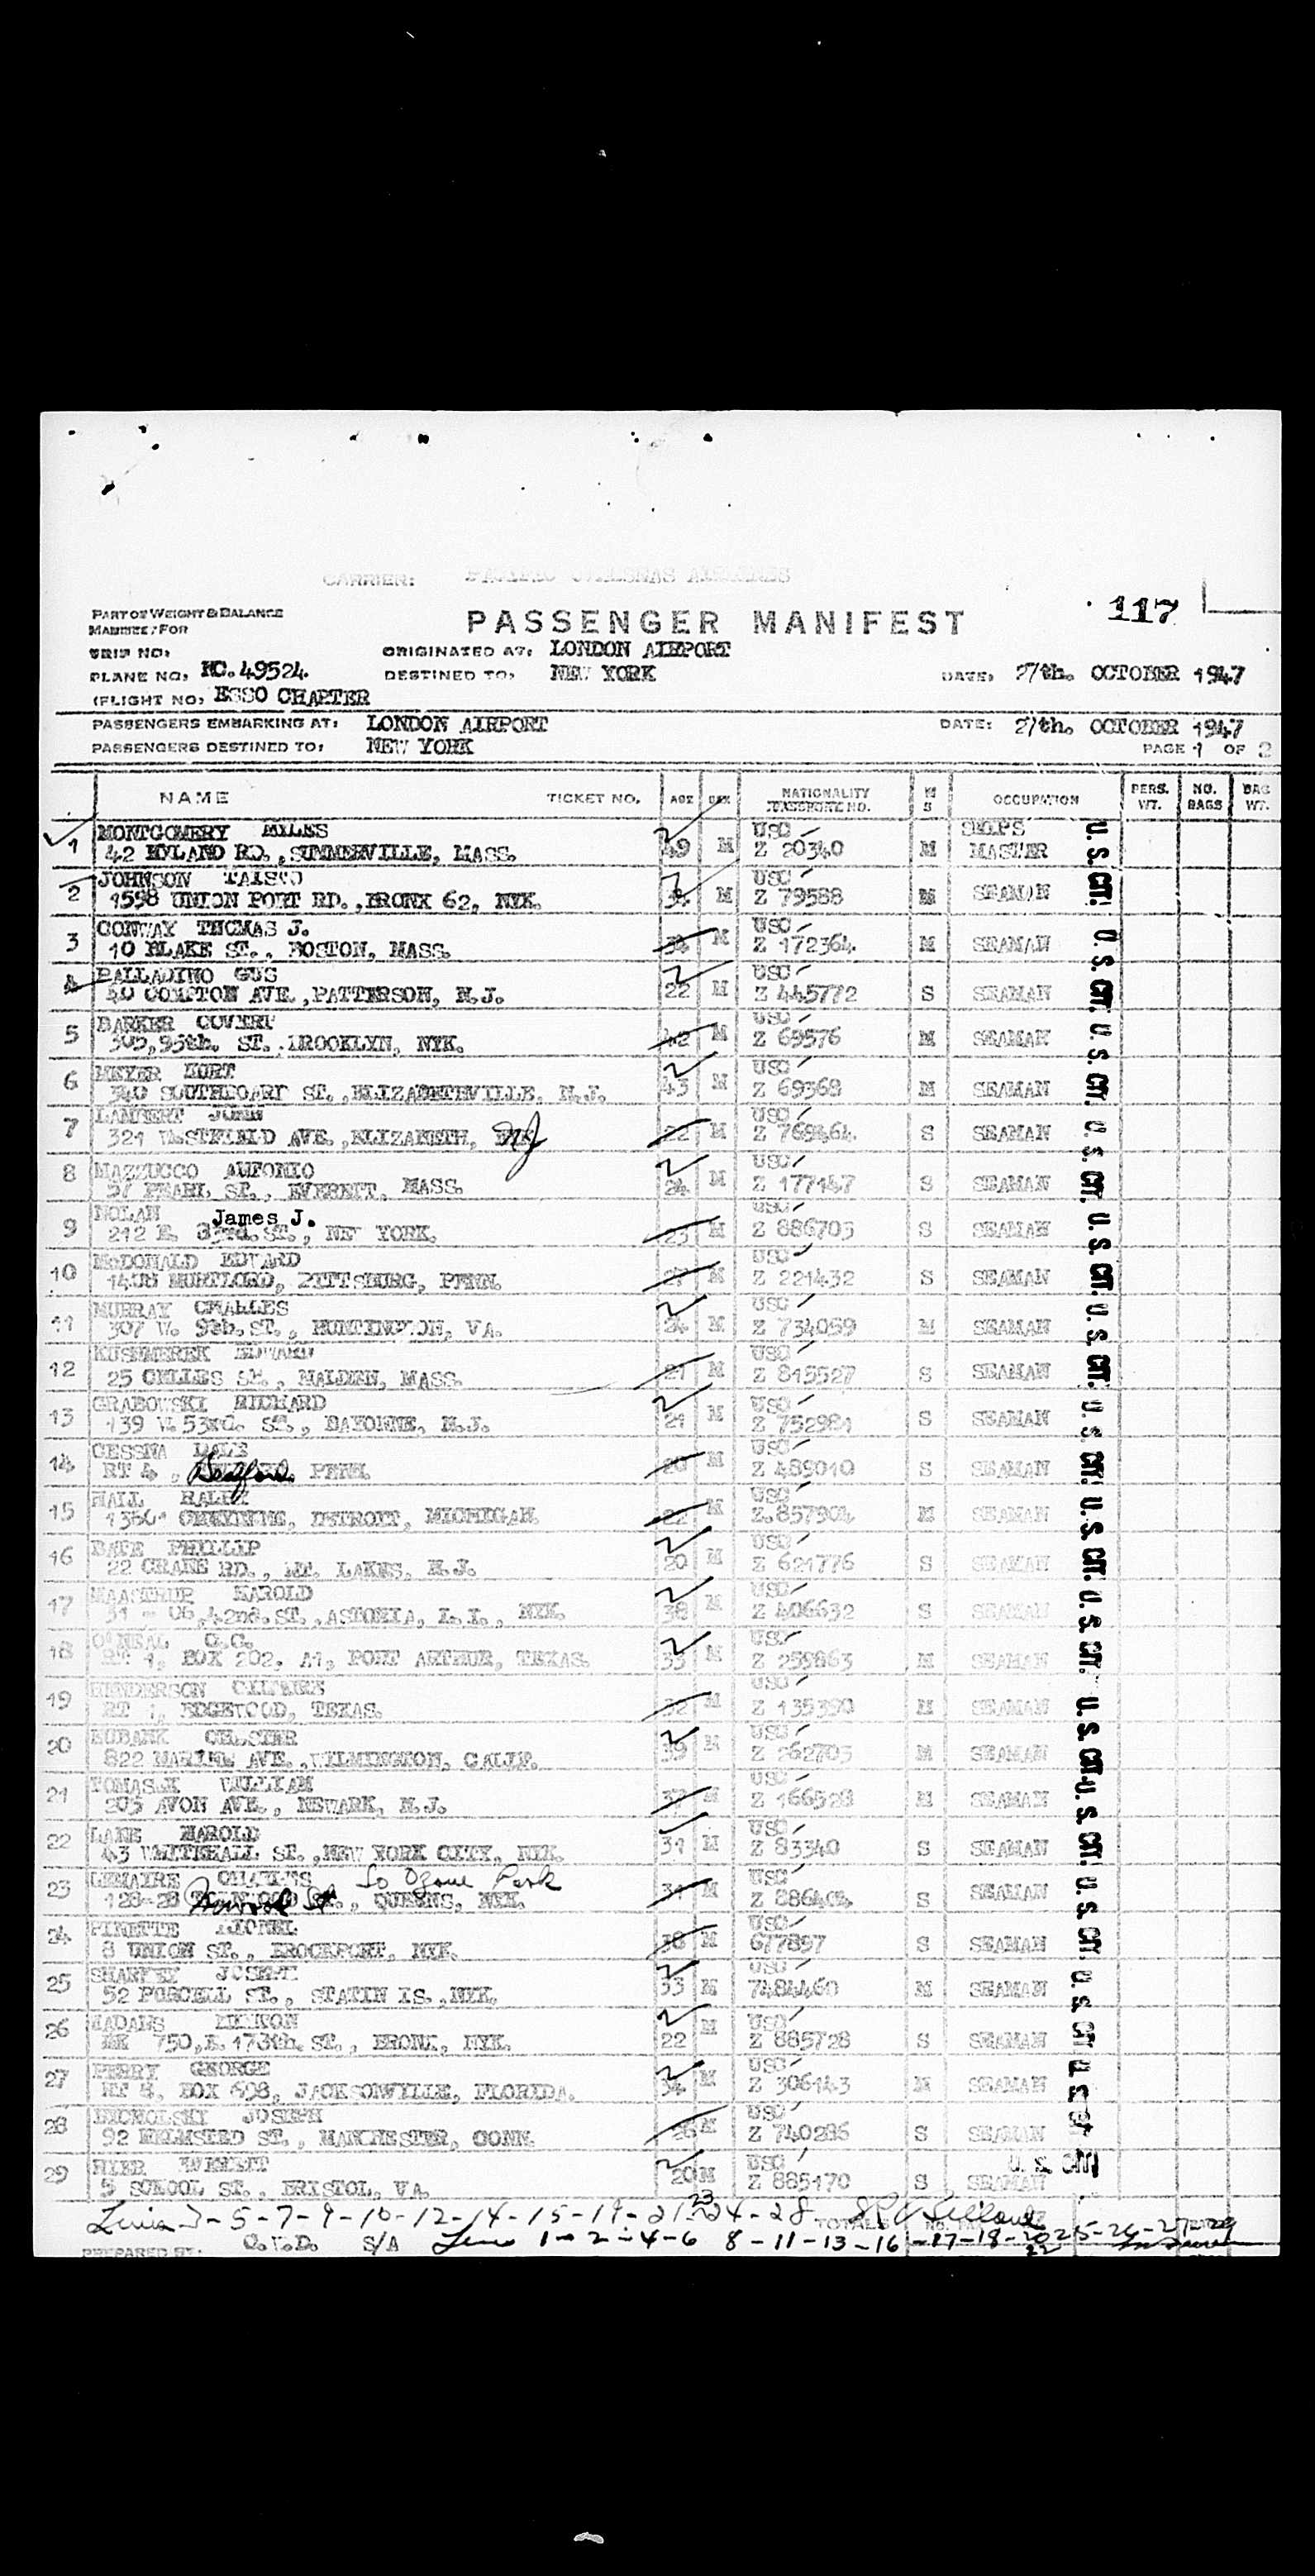 CARRIER: PACIFIC OVERSEAS AIRLINES
117
PART OF WEIGHT & BALANCE
PASSENGER MANIFEST
MANIFEST FOR
TRIP NO:
ORIGINATED AT: LONDON AIRPORT
PLANE NO. NC.49524.
DESTINED TO: NEW YORK
DATE: 27th. OCTOBER 1947
FLIGHT NO: ESSO CHARTER
PASSENGERS EMBARKING AT: LONDON AIRPORT
DATE: 27th. OCTOBER 1947
PASSENGERS DESTINED TO: NEW YORK
PAGE 1 OF 2
NAME TICKET NO. AGE SEX NATIONALITY PASSPORT NO. M S OCCUPATION PERS. WT. NO. BAGS BAG WT.
1 MONTGOMERY MILES USC SHIPS
42 HYLAND RD., SUMMERVILLE, MASS. 49 M Z 20340 M MASTER
2 JOHNSON TAISTO USC
1598 UNION PORT RD., BRONX 62, NYK. M Z 79588 M SEAMAN
3 CONWAY THOMAS J. USC
10 BLAKE ST., BOSTON, MASS. 34 M Z 172364 M SEAMAN
4 PALLADINO GUS USC
40 COMPTON AVE., PATTERSON, N.J. 22 M Z 445772 S SEAMAN
5 BARKER COVERT USC
305,95th. ST. BROOKLYN, NYK. 42 M Z 69576 M SEAMAN
6 MEYER KURT USC
340 ST., ELIZABETHVILLE, N.J. 43 M Z 69368 M SEAMAN
7 LAMPERT JOHN USC
321 WESTFIELD AVE., ELIZABETH, NJ 22 M Z 769464 S SEAMAN
8 MAZZUCCO USC
57 PEARL ST., EVERETT, MASS. 24 M Z 177147 S SEAMAN
9 NOLAN James J. USC
212 E. 83rd. ST., NEW YORK. 23 M Z 886703 S SEAMAN
10 McDONALD EDWARD USC
1408 PITTSBURG, PENN. 27 M Z 221432 S SEAMAN
11 MURRAY CHARLES USC
307 W. 9th. ST., HUNTINGTON, VA. 24 M Z 734059 M SEAMAN
12 EDWARD USC
25 ST., MALDEN, MASS. 21 M Z 815527 S SEAMAN
13 GRABOWSKI RICHARD USC
139 W. 53rd. ST., BAYONNE, N.J. 21 M Z 752981 S SEAMAN
14 CESSNA DALE USC
RT 4, Bedford PENN. 20 M Z 489010 S SEAMAN
15 HALL RALPH USC
CHEYENNE, DETROIT, MICHIGAN. 22 M Z.857904 M SEAMAN
16 PHILLIP USC
22 CRANE RD., MT. LAKES, N.J. 20 M Z 621776 S SEAMAN
17 MAASTRUP HAROLD USC
31 - 06, 42nd. ST., ASTORIA, L.I., NYK. 38 M Z 406632 S SEAMAN
18 O'NEAL O.C. USC
RT 1, BOX 202, A1, PORT ARTHUR, TEXAS. 33 M Z 259863 M SEAMAN
19 HENDERSON USC
RT 1, EDGEWOOD, TEXAS. 32 M Z 135390 M SEAMAN
20 EUBANK CHESTER USC
822 MARINE AVE., WILMINGTON, CALIF. 39 M Z 262703 M SEAMAN
21 WILLIAM USC
203 AVON AVE., NEWARK, N.J. 37 M Z 166528 M SEAMAN
22 LANE HAROLD USC
43 WHITEHALL ST., NEW YORK CITY, NYK. 31 M Z 83340 S SEAMAN
23 LEMAIRE CHARLES So Ozone Park USC
128-28 St., QUEENS, NYK. 31 M Z 286404 S SEAMAN
24 PINETTE LIONEL USC
8 UNION ST., BROCKPORT, NYK. 38 M 677857 S SEAMAN
25 SHARKEY JOSEPH USC
52 PURCELL ST., STATIN IS., NYK. 33 M 7484460 M SEAMAN
26 USC
750, E. 173th. ST., BRONX, NYK. 22 M Z 885728 S SEAMAN
27 PERRY GEORGE USC
RT 8, BOX 698, JACKSONVILLE, FLORIDA. 34 M Z 306143 M SEAMAN
28 JOSEPH USC
92 ST., MANCHESTER, CONN. 26 M Z 740286 S SEAMAN
29 USC
5 SCHOOL ST., BRISTOL, VA. 20 M Z 885170 S SEAMAN
U.S. CIT. U.S. CIT. U.S. CIT. U.S. CIT. U.S. CIT. U.S. CIT. U.S. CIT. U.S. CIT. U.S. CIT. U.S. CIT. U.S. CIT. U.S. CIT. U.S. CIT.
Lines 3-5-7-9-10-12-14-15-19-21-23-24-28 TOTALS
PREPARED BY: S/A Lines 1-2-4-6 8-11-13-16-17-18-20 22 25-26-27-29